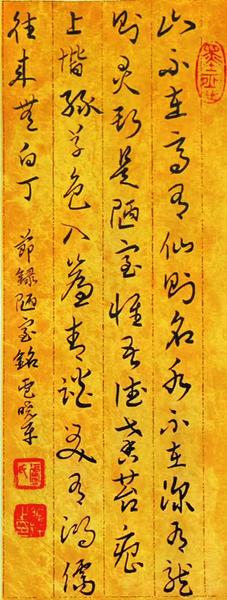 山不在高有仙则名水不在深有龍
则灵斯是陋室惟吾德馨苔痕
上階綠草色入簾青談笑有鴻儒
往来無白丁
節録陋室銘